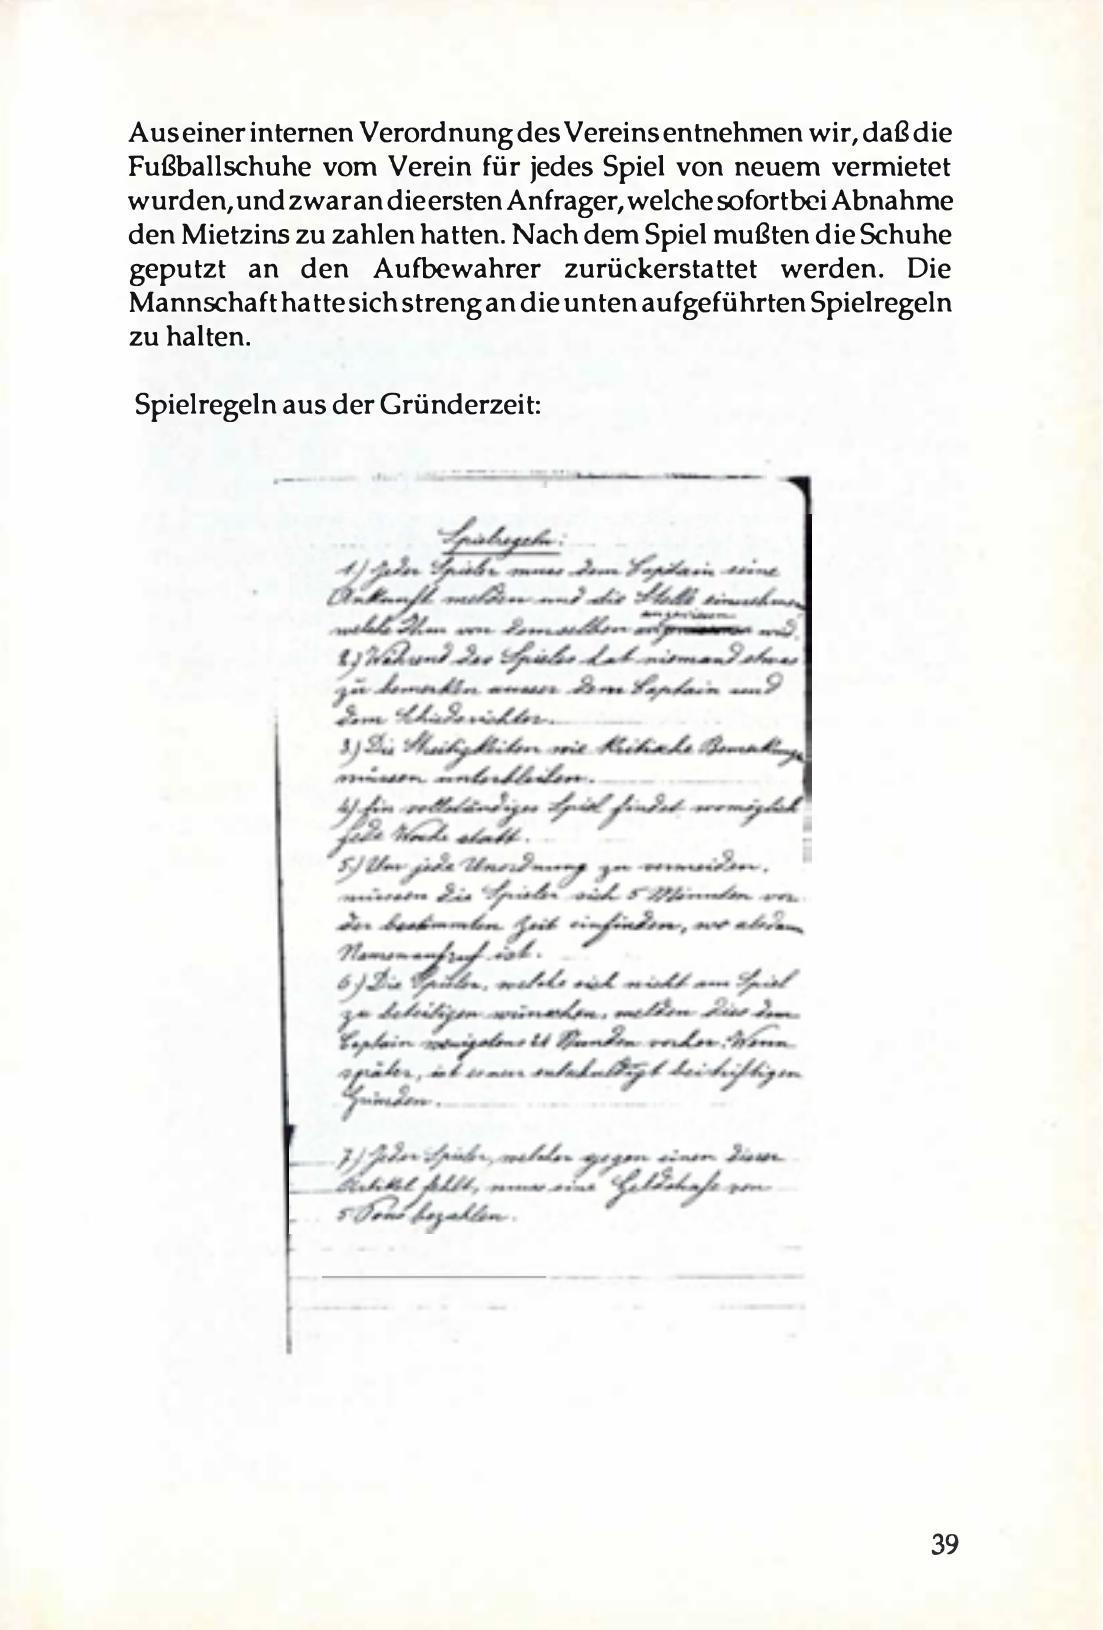 Aus einer internen Verordnung des Vereins entnehmen wir, daß die
Fußballschuhe vom Verein für jedes Spiel von neuem vermietet
wurden, und zwar an die ersten Anfrager, welche sofort bei Abnahme
den Mietzins zu zahlen hatten. Nach dem Spiel mußten die Schuhe
geputzt an den Aufbewahrer zurückerstattet werden. Die
Mannschaft hatte sich streng an die unten aufgeführten Spielregeln
zu halten.
Spielregeln aus der Gründerzeit:
Spielregeln:
1.) Jeder Spieler muss dem Captain seine
Ankunft melden und die Stelle einnehmen
angewiesen
welche Ihm von demselben wird.
2.) Während des Spieles hat niemand etwas
zu bemerken ausser dem Captain und
dem Schiedsrichter.
3.) Die Streitigkeiten wie kritische Bemerkungen
müssen unterbleiben.
4.) Ein vollständiges Spiel findet womöglich
jede Woche statt.
5.) Um jede Unordnung zu vermeiden,
müssen die Spieler sich 5 Minuten vor
der bestimmten Zeit einfinden, wo alsdann
Namenaufruf ist.
6.) Die Spieler, welche sich nicht am Spiel
zu beteiligen wünschen, melden dies dem
Captain wenigstens 24 Stunden vorher. Wenn
später, ist man entschuldigt bei triftigen
Gründen.
7.) Jeder Spieler, welcher gegen einen dieser
Artikel fehlt, muss eine Geldstrafe von
5 Sous bezahlen.
39